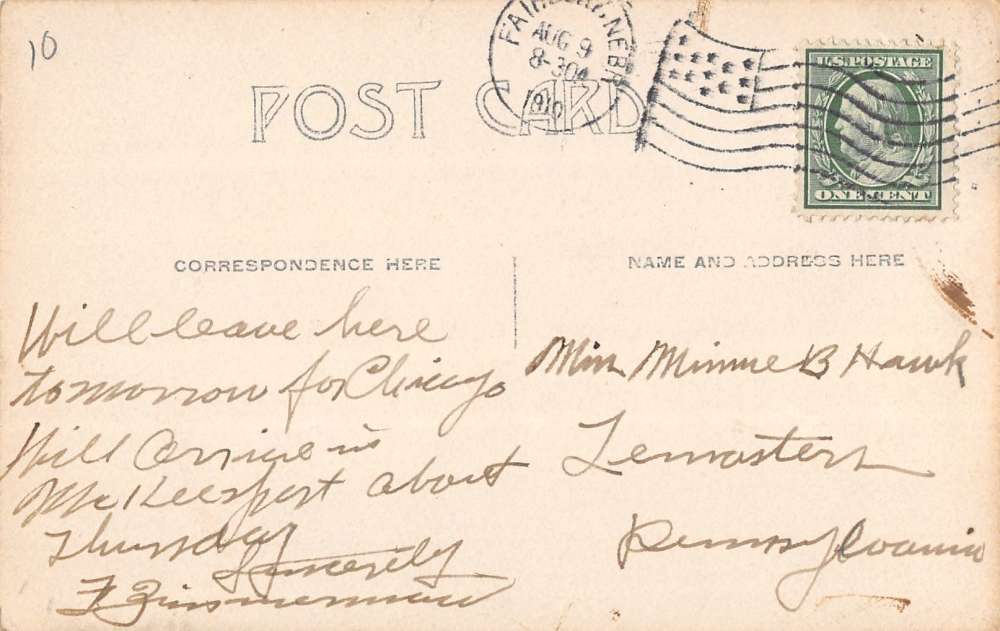 10
FAIRBURY, NEBR.
AUG 9
8-30A
1910
U.S. POSTAGE
ONE CENT
POST CARD
CORRESPONDENCE HERE
NAME AND ADDRESS HERE
Will leave here
tomorrow for Chicago
Will Arrive in
McKeesport about
Thursday
Sincerely
F Zimmerman
Miss Minnie B Hawk
Lemasters
Pennsylvania